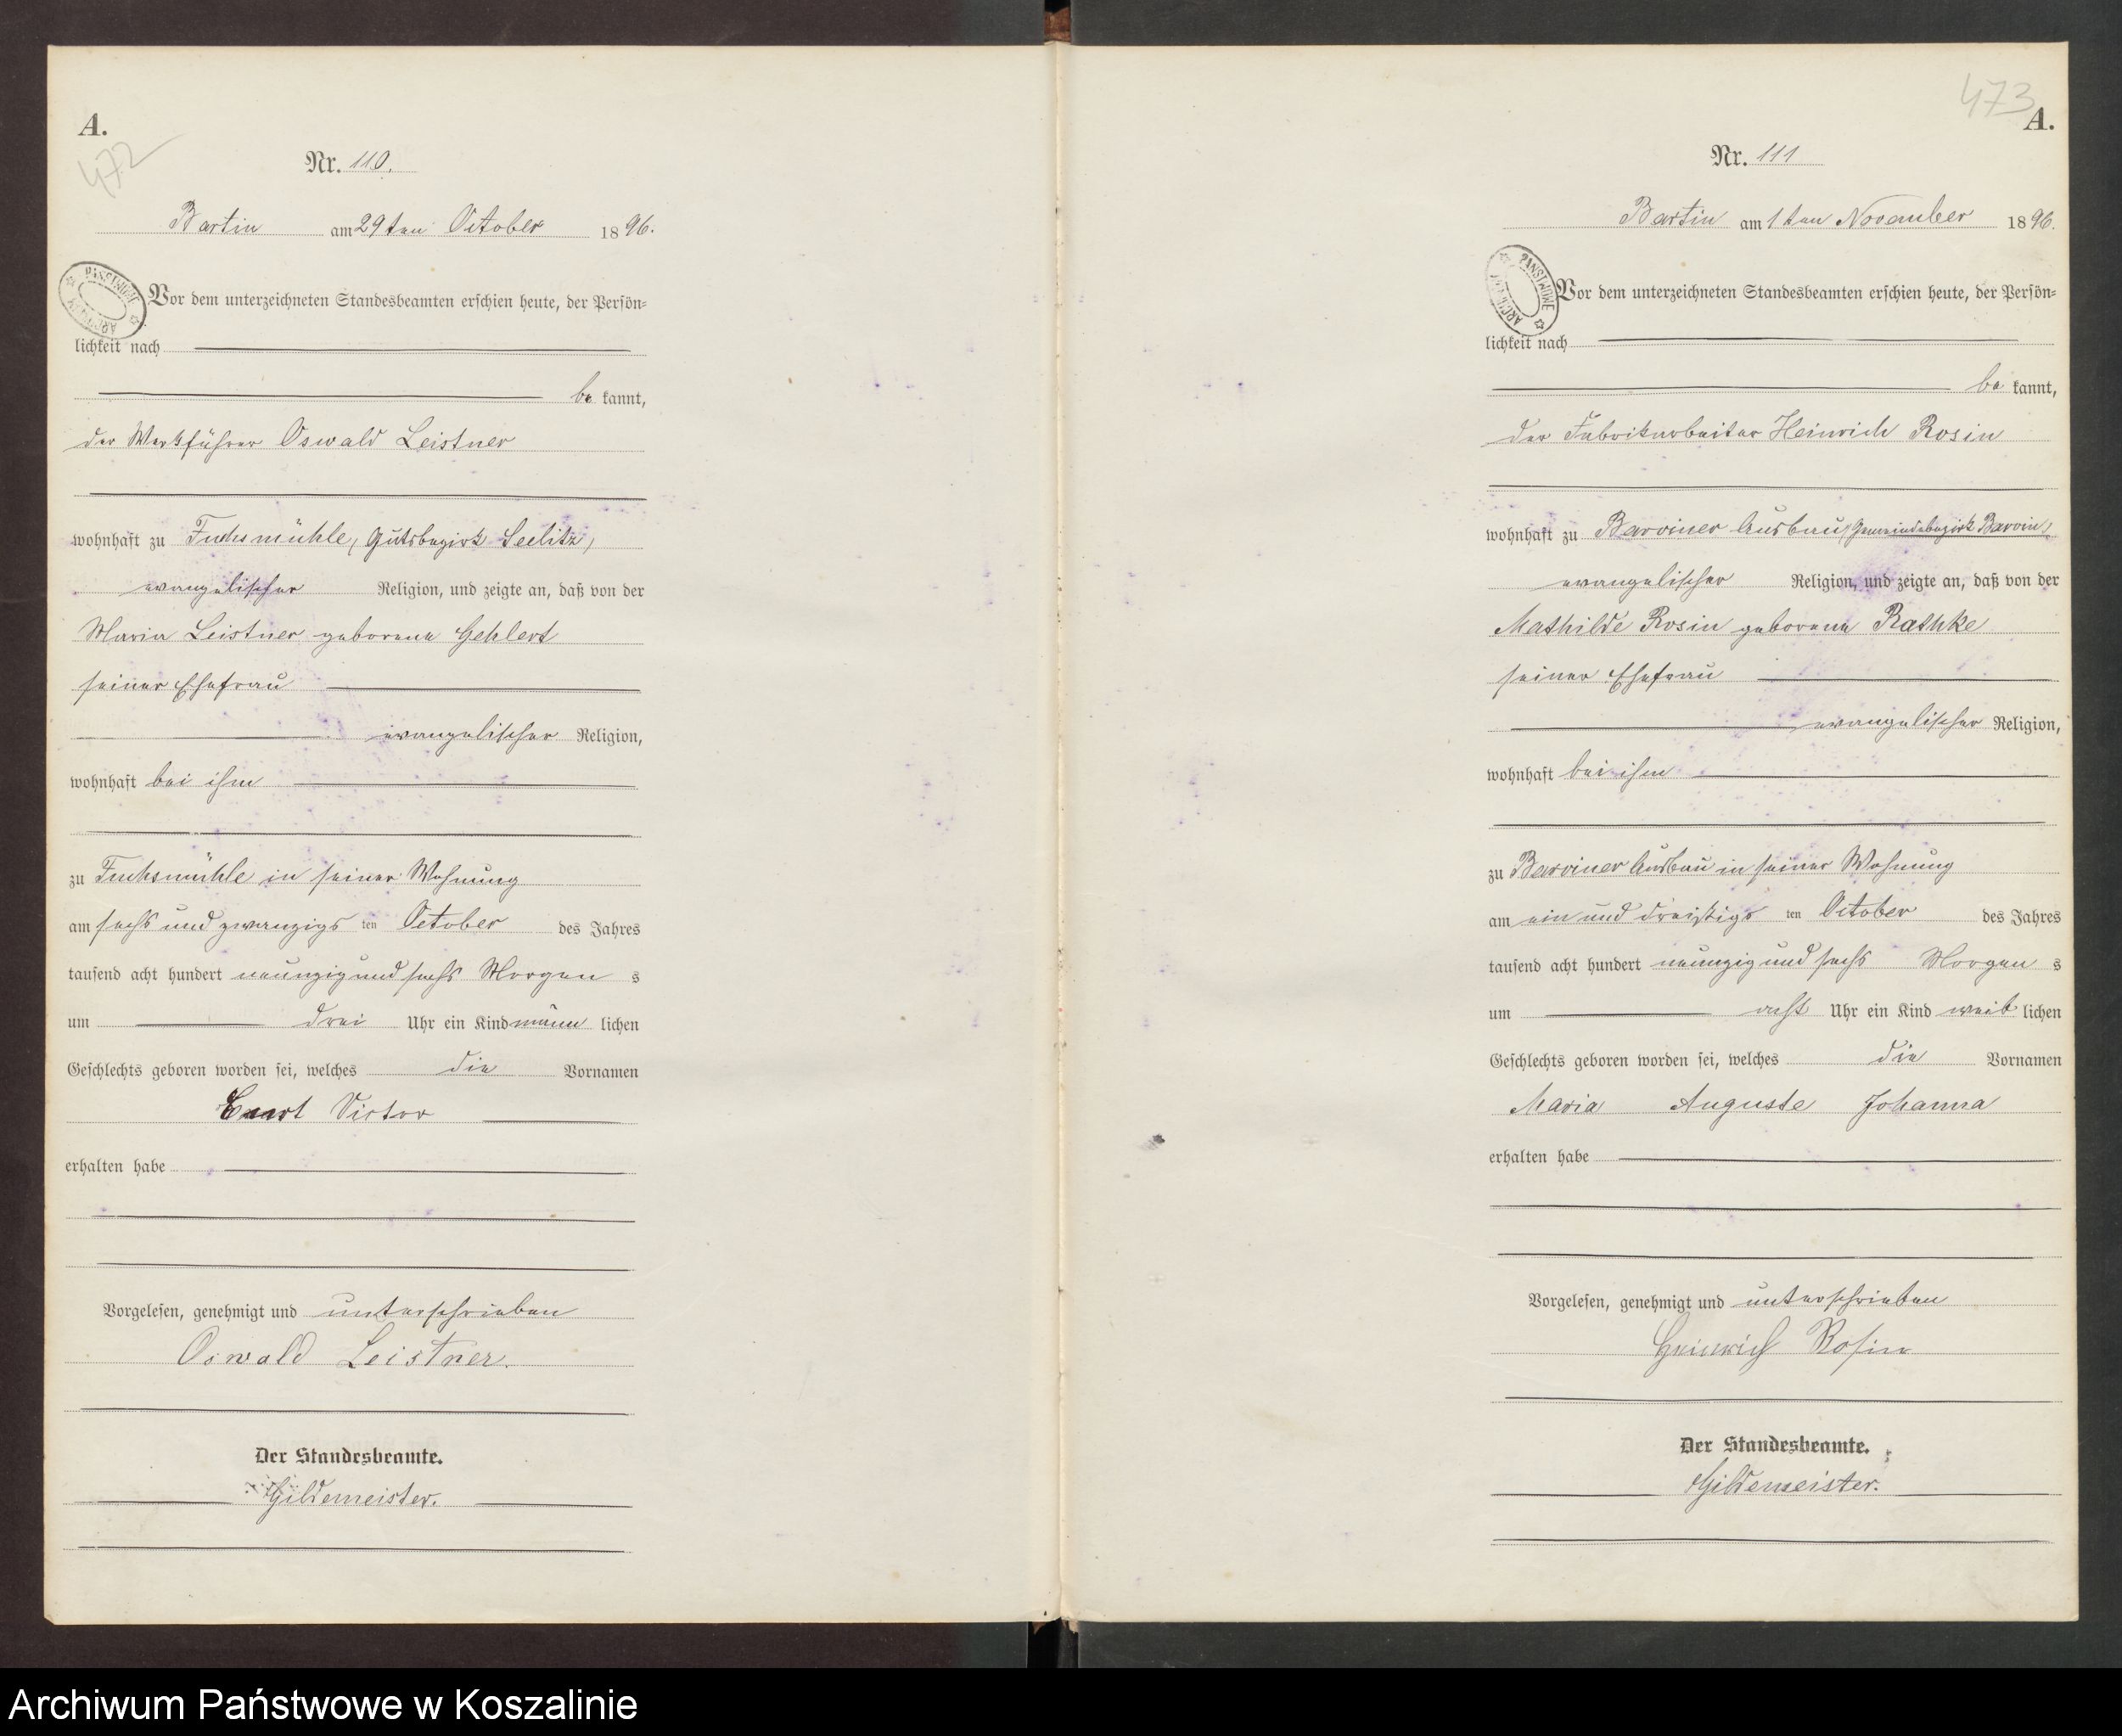 A.
472
Nr. 110.
Bartin am 29ten October 1896.
PAŃSTWOWE ARCHIWUM
Vor dem unterzeichneten Standesbeamten erschien heute, der Persön-
lichkeit nach
be kannt,
der Werkführer Oswald Leistner
wohnhaft zu Fuchsmühle, Gutsbezirk Seelitz,
evangelischer Religion, und zeigte an, daß von der
Maria Leistner geborene Gehlert
seiner Ehefrau
evangelischer Religion,
wohnhaft bei ihm
zu Fuchsmühle in seiner Wohnung
am sechs und zwanzigs ten October des Jahres
tausend acht hundert neunzig und sechs Morgen s
um drei Uhr ein Kind männ lichen
Geschlechts geboren worden sei, welches die Vornamen
Victor
erhalten habe
Vorgelesen, genehmigt und unterschrieben
Oswald Leistner.
Der Standesbeamte.
Gildemeister.
473
A.
Nr. 111
Bartin am 1ten November 1896.
PAŃSTWOWE ARCHIWUM
Vor dem unterzeichneten Standesbeamten erschien heute, der Persön-
lichkeit nach
be kannt,
der Fabrikarbeiter Heinrich Rosin
wohnhaft zu Barviner Ausbau, Gemeindebezirk Barvin,
evangelischer Religion, und zeigte an, daß von der
Mathilde Rosin geborene Rathke
seiner Ehefrau
evangelischer Religion,
wohnhaft bei ihm
zu Barviner Ausbau in seiner Wohnung
am ein und dreißigs ten October des Jahres
tausend acht hundert neunzig und sechs Morgen s
um acht Uhr ein Kind weib lichen
Geschlechts geboren worden sei, welches die Vornamen
Maria Auguste Johanna
erhalten habe
Vorgelesen, genehmigt und unterschrieben
Heinrich Rosin
Der Standesbeamte.
Gildemeister.
Archiwum Państwowe w Koszalinie